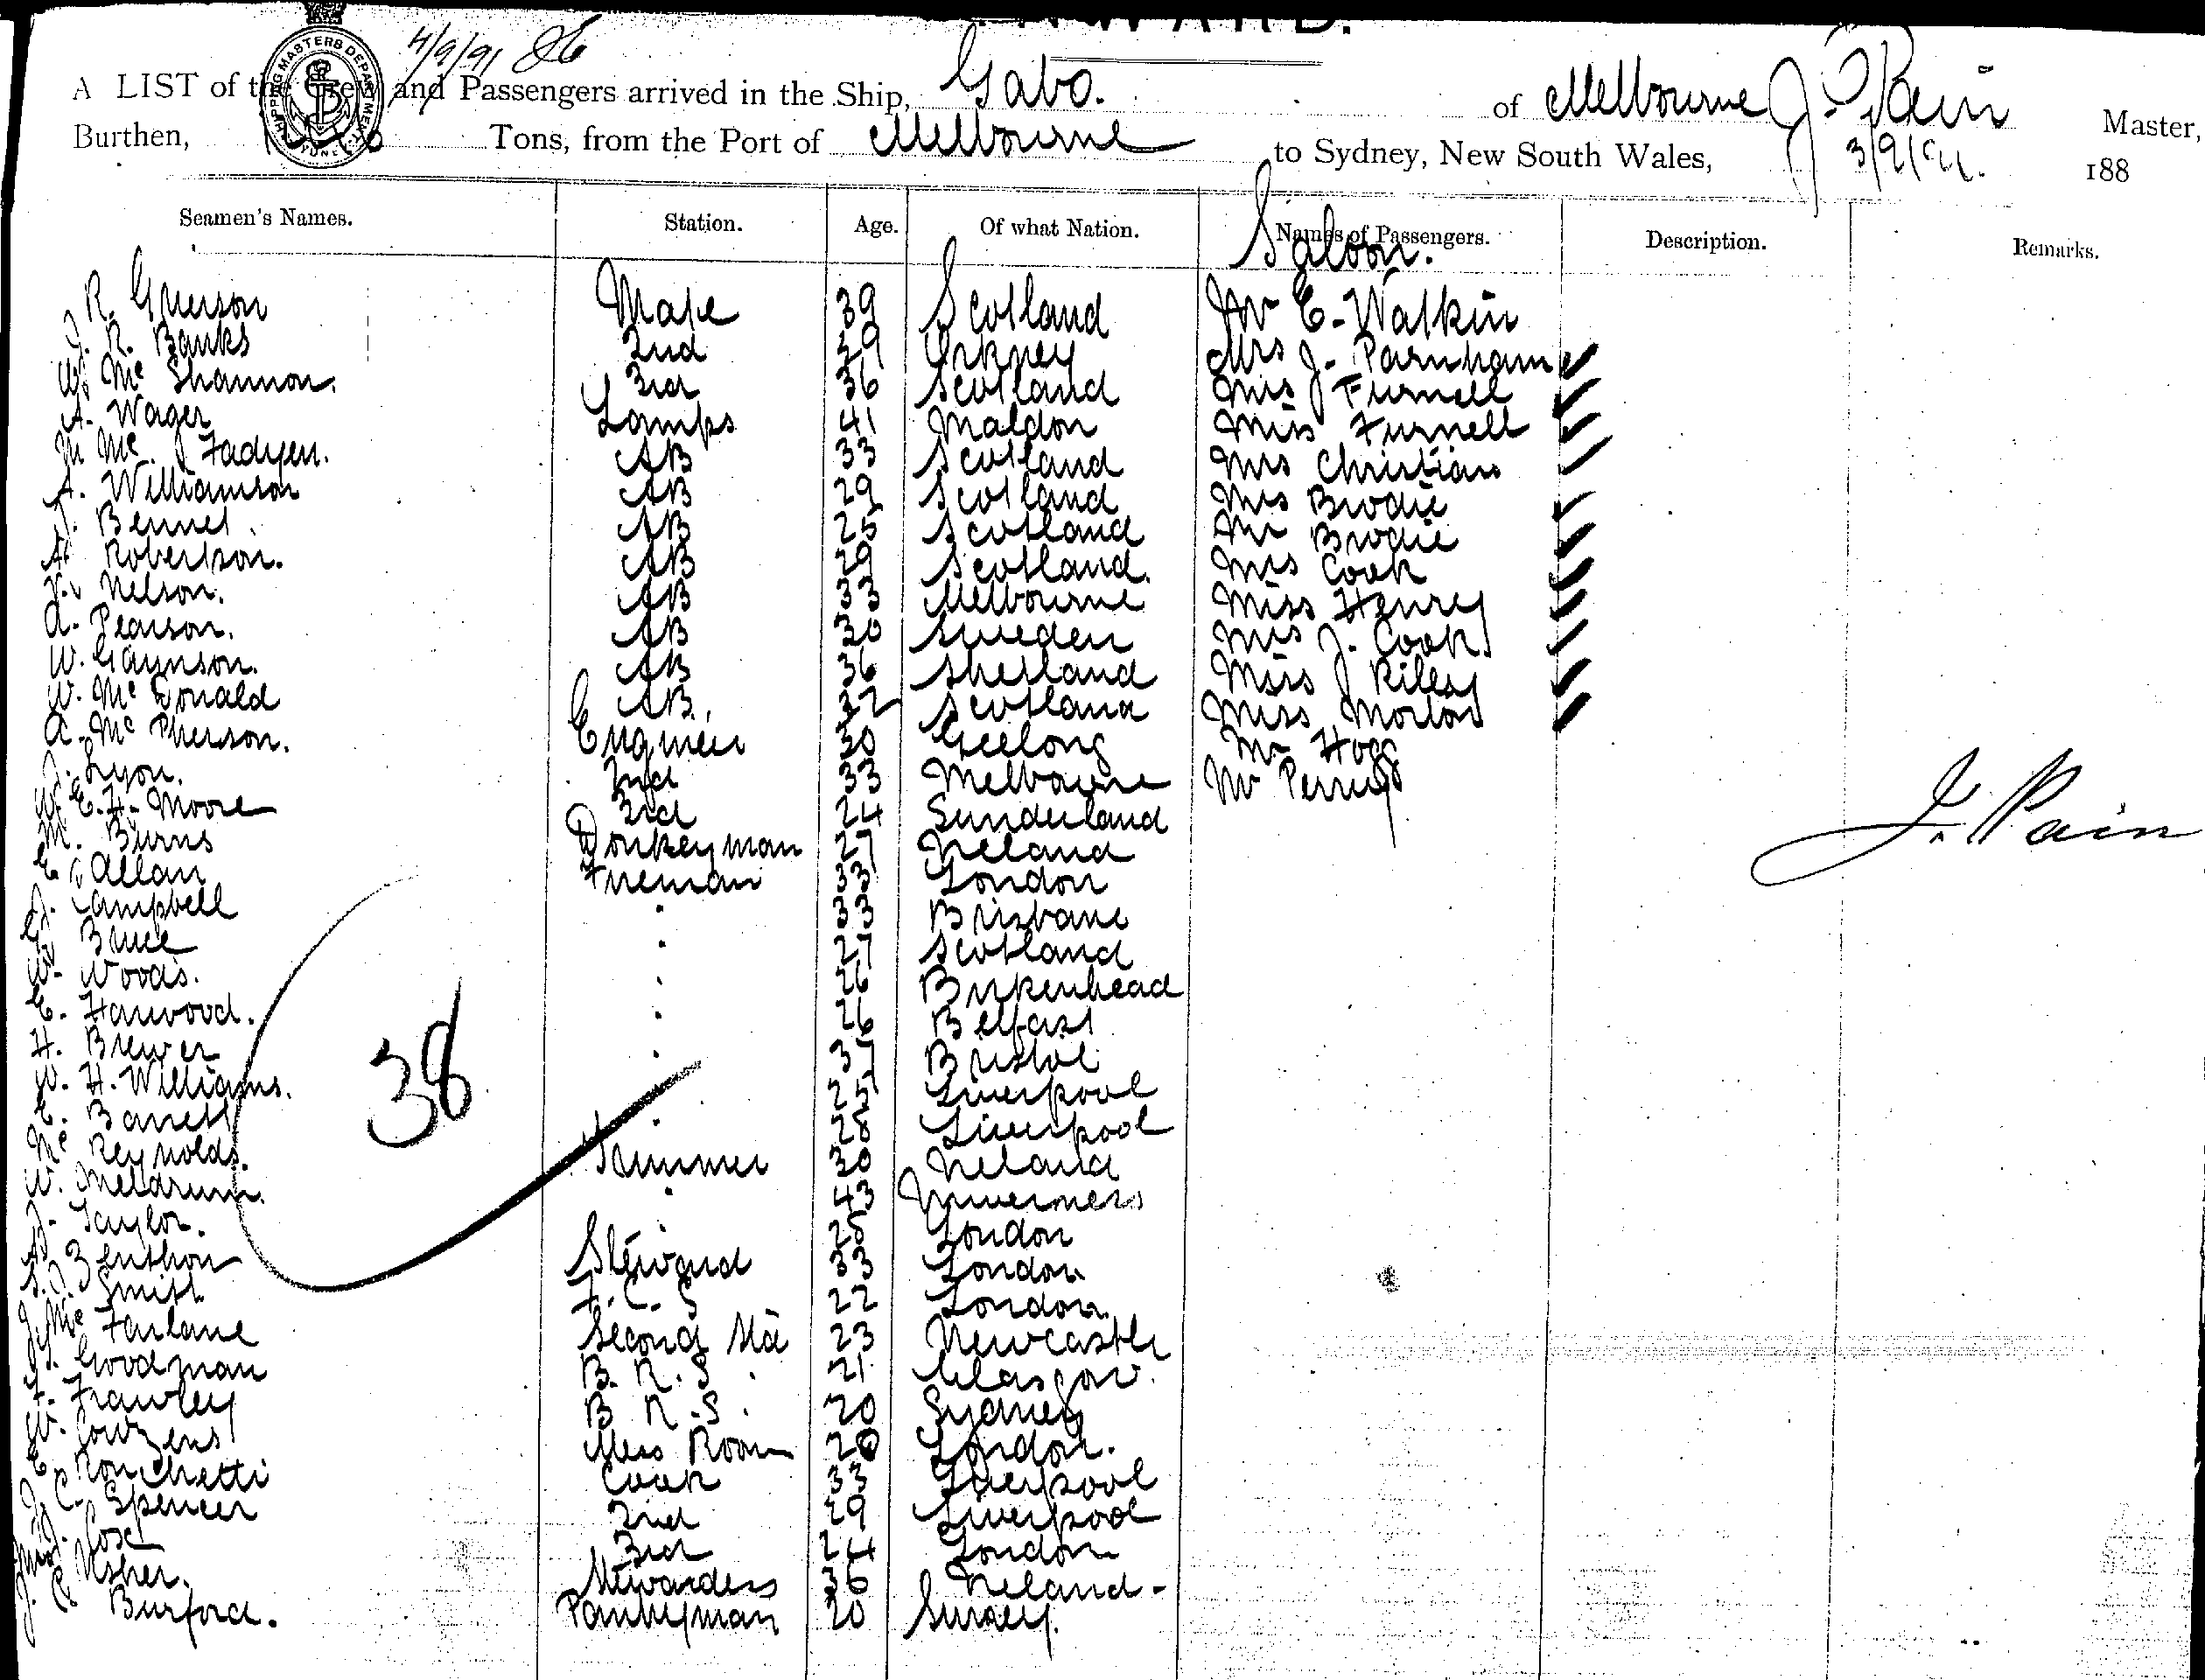 INWARD.
4/9/91 86
SHIPPING MASTERS DEPARTMENT
A LIST of the Crew and Passengers arrived in the Ship, Gabo. of Melbourne J. Pain Master,
Burthen, Tons, from the Port of Melbourne to Sydney, New South Wales, 3/9/91. 188
Seamen's Names. Station. Age. Of what Nation. Names of Passengers. Description. Remarks.
Saloon.
J. R. Grierson Mate 39 Scotland Mr E. Watkin
J. R. Banks 2nd 29 Orkney Mrs J. Parnham
W. Mc Shannon. 3rd 36 Scotland Mrs J Furnell
A. Wager Lamps 41 Maldon Miss Furnell
M Mc Fadyen. AB 33 Scotland Mrs Christian
A. Williamson AB 29 Scotland Mrs Brodie
J. Bennet. AB 25 Scotland Mr Brodie
A. Robertson. AB 29 Scotland. Mrs Cook
Nelson. AB 33 Melbourne Miss Henry
A. Pearson. AB 30 Sweden Mrs J. Cook
W. Gaunson. AB 36 Shetland Miss J Riley
W. Mc Donald AB. 32 Scotland Miss Morton
A. Mc Pherson. Engineer 30 Geelong Mr Hogg
J. Lyon. 2nd 33 Melbourne Mr Perry
W. E. H. Moore 3rd 24 Sunderland
J. Pain
M. Burns Donkeyman 27 Ireland
E. Allan Fireman 33 London
J. Campbell 33 Brisbane
Bruce 27 Scotland
W. Woods. 26 Birkenhead
E. Harwood. 26 Belfast
H. Brewer 37 Bristol
38
W. H. Williams. 25 Liverpool
E. Barrett 28 Liverpool
Mc Reynolds. Trimmer 30 Ireland
W. Meldrum. 43 Inverness
J. Taylor. 28 London
Benthon Steward 33 London
Smith F. C. S 22 London
J. Mc Farlane Second Std 23 Newcastle
Goodman B. R. S. 21 Glasgow.
F. Frawley B R.S. 20 Sydney
W. Couzens Mess Room 20 London.
E Ronchetti Cook 33 Liverpool
J. C. Spencer 2nd 29 Liverpool
J. Cose 3rd 24 London
Mrs Usher. Stewardess 36 Ireland-
J. R Burford. Pantryman 20 Surrey.